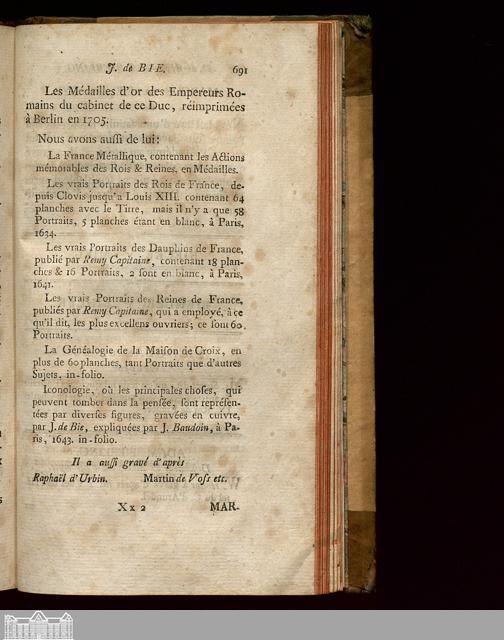 J. de BIE. 691
Les Médailles d'or des Empereurs Ro-
mains du cabinet de ce Duc, réimprimées
à Berlin en 1705.
Nous avons auſſi de lui:
La France Métallique, contenant les Actions
mémorables des Rois & Reines, en Médailles.
Les vrais Portraits des Rois de France, de-
puis Clovis jusqu'a Louis XIII. contenant 64
planches avec le Titre, mais il n'y a que 58
Portraits, 5 planches étant en blanc, à Paris,
1634.
Les vrais Portraits des Dauphins de France,
publié par Remy Capitaine, contenant 18 plan-
ches & 16 Portraits, 2 ſont en blanc, à Paris,
1641.
Les vrais Portraits des Reines de France,
publiés par Remy Capitaine, qui a employé, à ce
qu'il dit, les plus excellens ouvriers; ce ſont 60.
Portraits.
La Généalogie de la Maiſon de Croix, en
plus de 60 planches, tant Portraits que d'autres
Sujets. in-folio.
Iconologie, où les principales choſes, qui
peuvent tomber dans la penſée, ſont repréſen-
tées par diverſes figures, gravées en cuivre,
par J. de Bie, expliquées par J. Baudoin, à Pa-
ris, 1643. in-folio.
Il a auſſi gravé d'après
Raphaël d'Urbin. Martin de Voſs etc.
Xx 2 MAR-